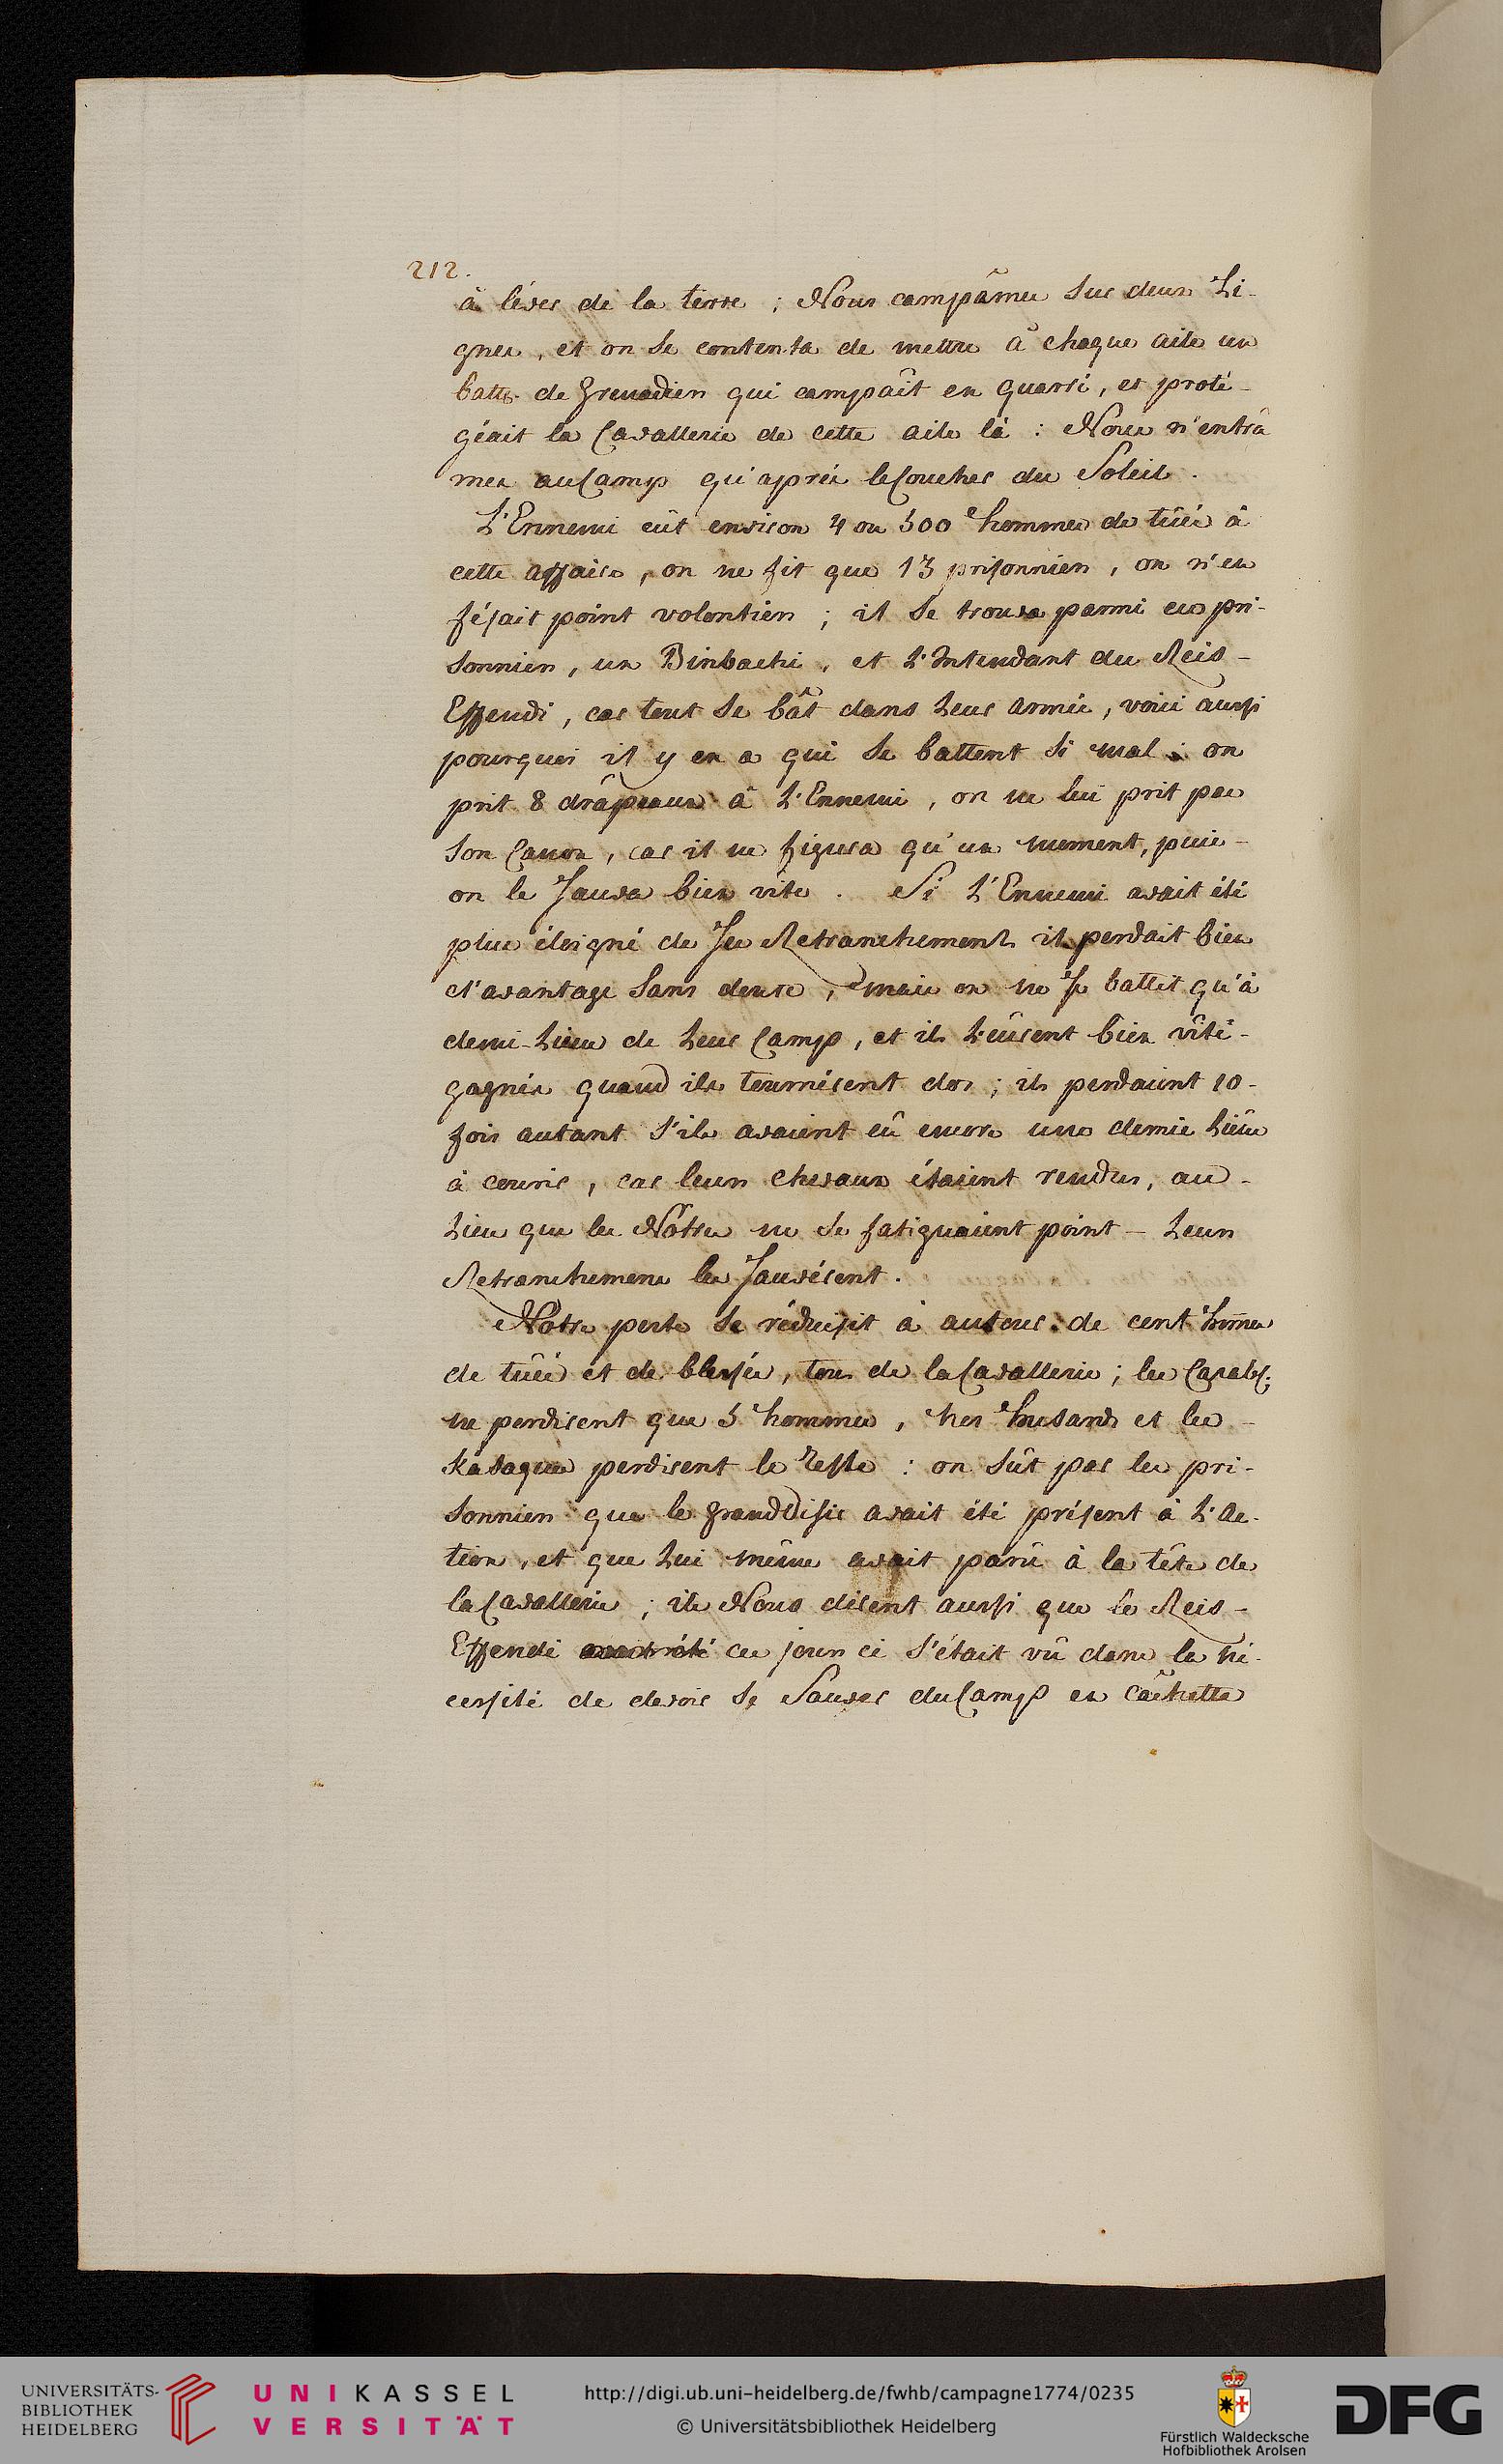 212.
à léver de la terre ; Nous campâmes sur deux Li-
gnes, et on se contenta de mettre à chaque aile un
batt: de Grenadiers qui campait en quarré, et proté-
géait la Cavallerie de cette aile là : Nous n'entrâ
mes au Camp qu'après le Coucher du Soleil.
L'Ennemi eût environ 4 ou 500 hommes de tüés à
cette affaire, on ne fit que 13 prisonniers, on n'en
fésait point volontiers ; il se trouva parmi ces pri-
sonniers, un Binbachi, et L'Intendant du Reis-
Effendi, car tout se bât dans Leur armée, voici aussi
pourquoi il y en a qui se battent si mal : on
prit 8 drâpeaux à L'Ennemi, on ne lui prit pas
son Canon, car il ne figura qu'un moment, puis-
on le Sauva bien vite. Si L'Ennemi avait été
plus éloigné de Ses Retranchements il perdait bien
d'avantage Sans doute, mais on ne Se battit qu'à
demi-Lieue de Leur Camp, et ils L'eûrent bien vîte-
gagnés quand ils tournérent dos ; ils perdaient 10-
fois autant S'ils avaient eû encore une demie Lieüe
à courir, car leurs chevaux étaient rendus, au-
Lieu que les Nôtres ne se fatiguaient point - Leurs
Retranchemens les Sauvérent.
Nôtre perte se réduisit à autour de cent hom̄es
de tüés et de blessés, tous de la Cavallerie ; les Carab:
ne perdirent que 5 hommes, les husards et les -
Kasaques perdirent le reste : on sût par les pri-
sonniers que le Grand Visir avait été présent à L'ac-
tion, et que Lui même avait parû à la tête de
la Cavallerie ; ils Nous dirent aussi que le Reis-
Effendi avait été ces jours ci S'était vû dans la né-
cessité de devoir Se Sauver du Camp en câchette
UNIVERSITÄTS-
BIBLIOTHEK
HEIDELBERG
UNIKASSEL
VERSITÄT
http://digi.ub.uni-heidelberg.de/fwhb/campagne1774/0235
© Universitätsbibliothek Heidelberg
Fürstlich Waldecksche
Hofbibliothek Arolsen
DFG